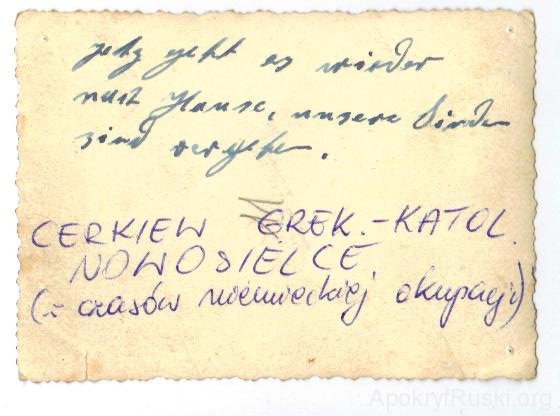 jetz geht es wieder
nach Hause, unsere Sünden
sind vergeben.
CERKIEW GREK.-KATOL.
NOWOSIELCE
(z czasów niemieckiej okupacji)
ApokryfRuski.org